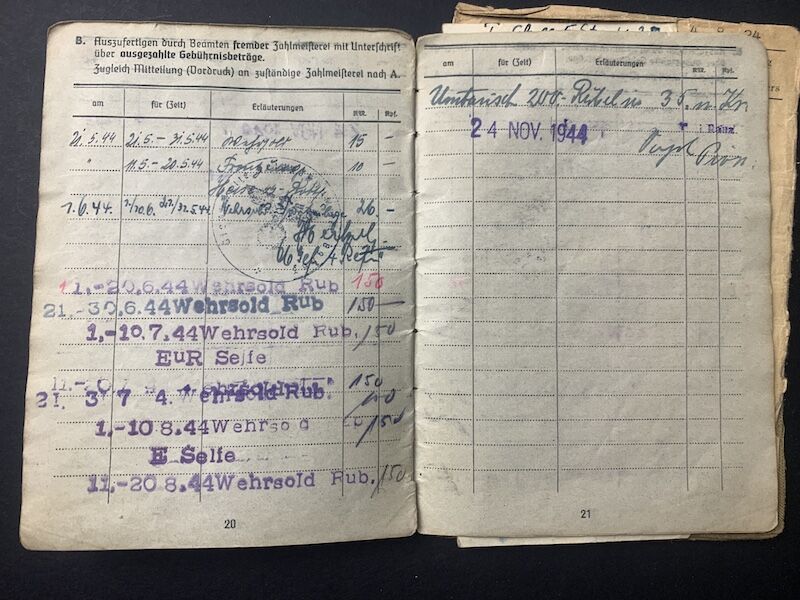 B. Auszufertigen durch Beamten fremder Zahlmeisterei mit Unterschrift
über ausgezahlte Gebührnisbeträge.
Zugleich Mitteilung (Vordruck) an zuständige Zahlmeisterei nach A.
am für (Zeit) Erläuterungen RM. Rpf.
21.5.44 21.5. – 31.5.44 Wehrsold 15 –
" 11.5. – 20.5.44 10 –
1.6.44. Wehrsold 26 –
11.-20.6.44 Wehrsold Rub 150
21.-30.6.44 Wehrsold Rub 150 –
1.-10.7.44 Wehrsold Rub. 150
EuR Seife
11.- 150
21. 3 7 4. Wehrsold Rub. 150
1.-10 8.44 Wehrso d 150
E Seife
11.-20 8.44 Wehrsold Rub. 150
20
am für (Zeit) Erläuterungen RM. Rpf.
Umtausch 200.- Rubel in 35.- n. Kr.
24 NOV. 1944
21